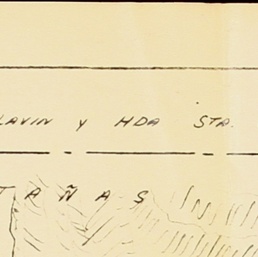 LAVIN Y HDA STA.
TAÑAS